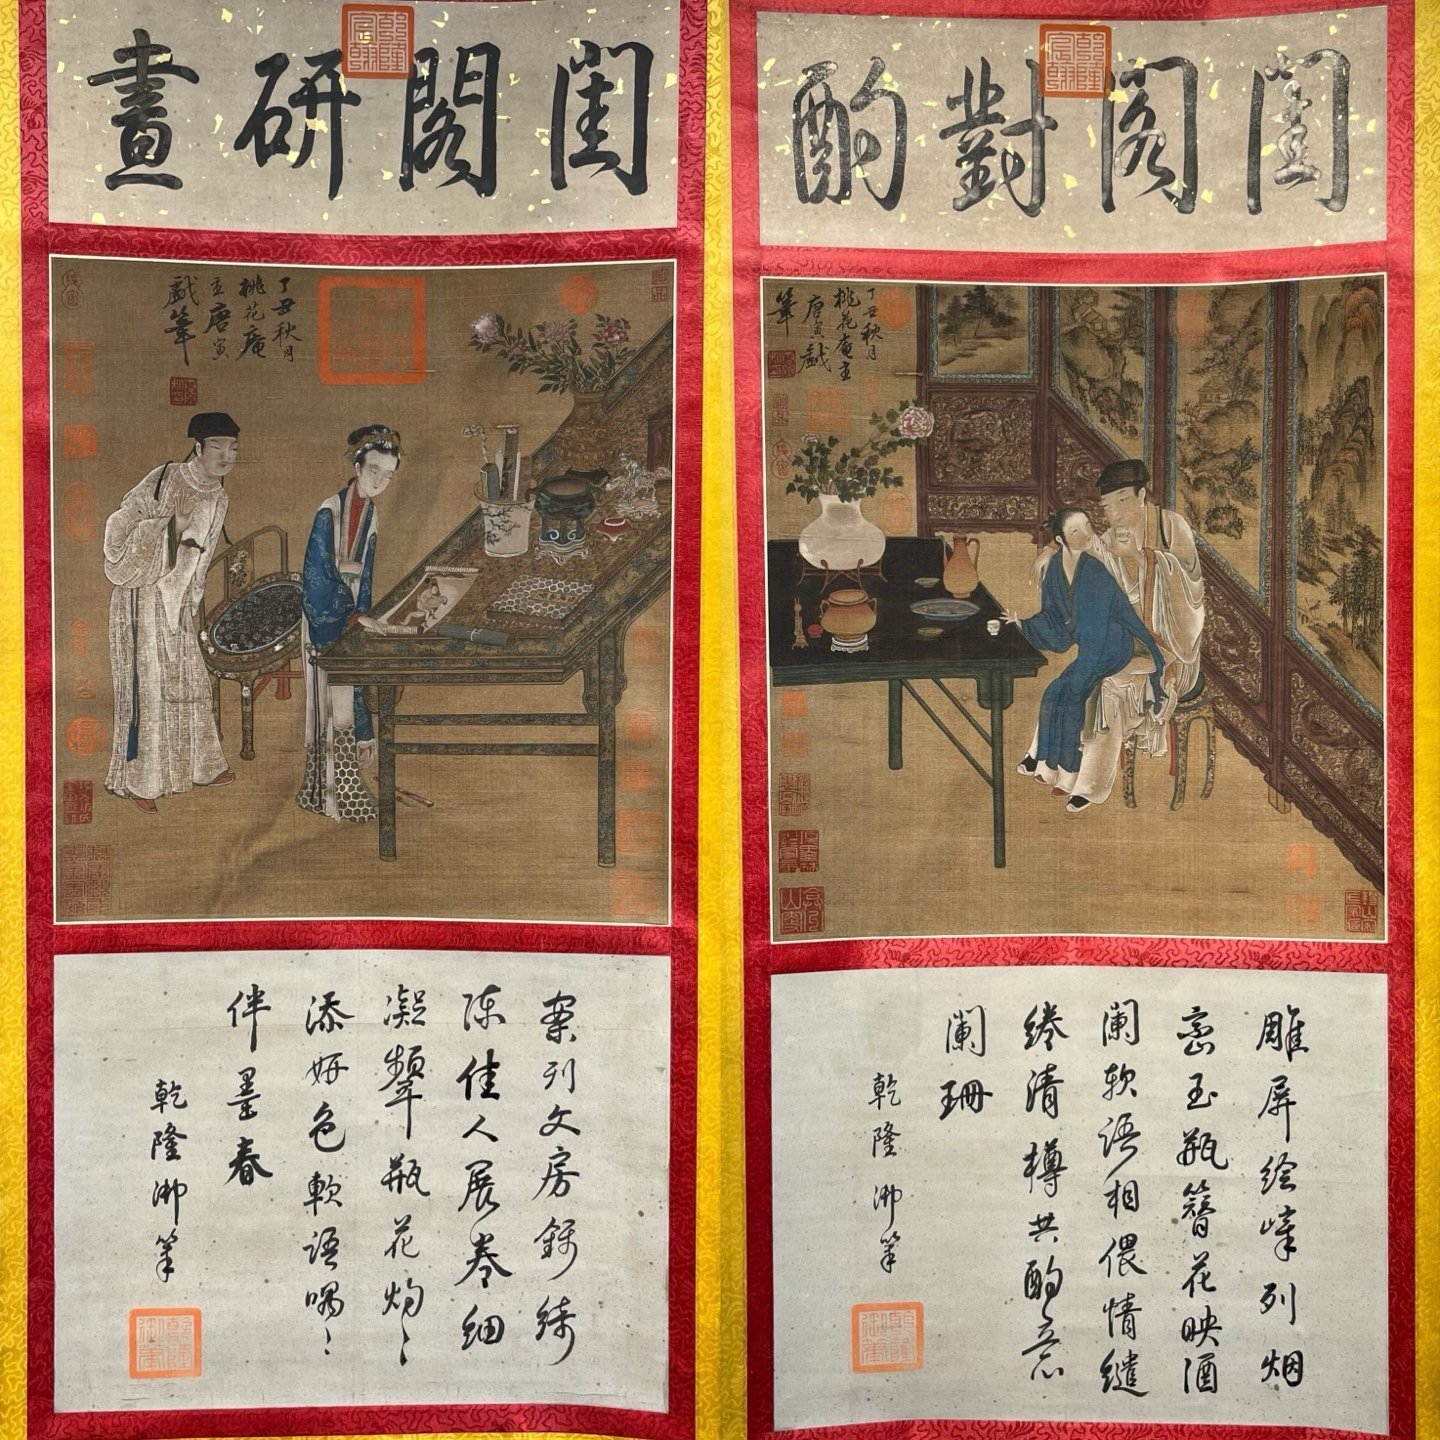 閨閣對酌
丁丑秋月
桃花庵主
唐寅戲
筆
雕屏绘嶂列烟
峦玉瓶簪花映酒
阑软语相偎情缱
绻清樽共酌意
阑珊
乾隆御筆
閨閣研畫
丁丑秋月
桃花庵
主唐寅
戲筆
案列文房錦绮
陈佳人展卷细
凝颦瓶花灼灼
添妍色軟语喁喁
伴墨春
乾隆御筆